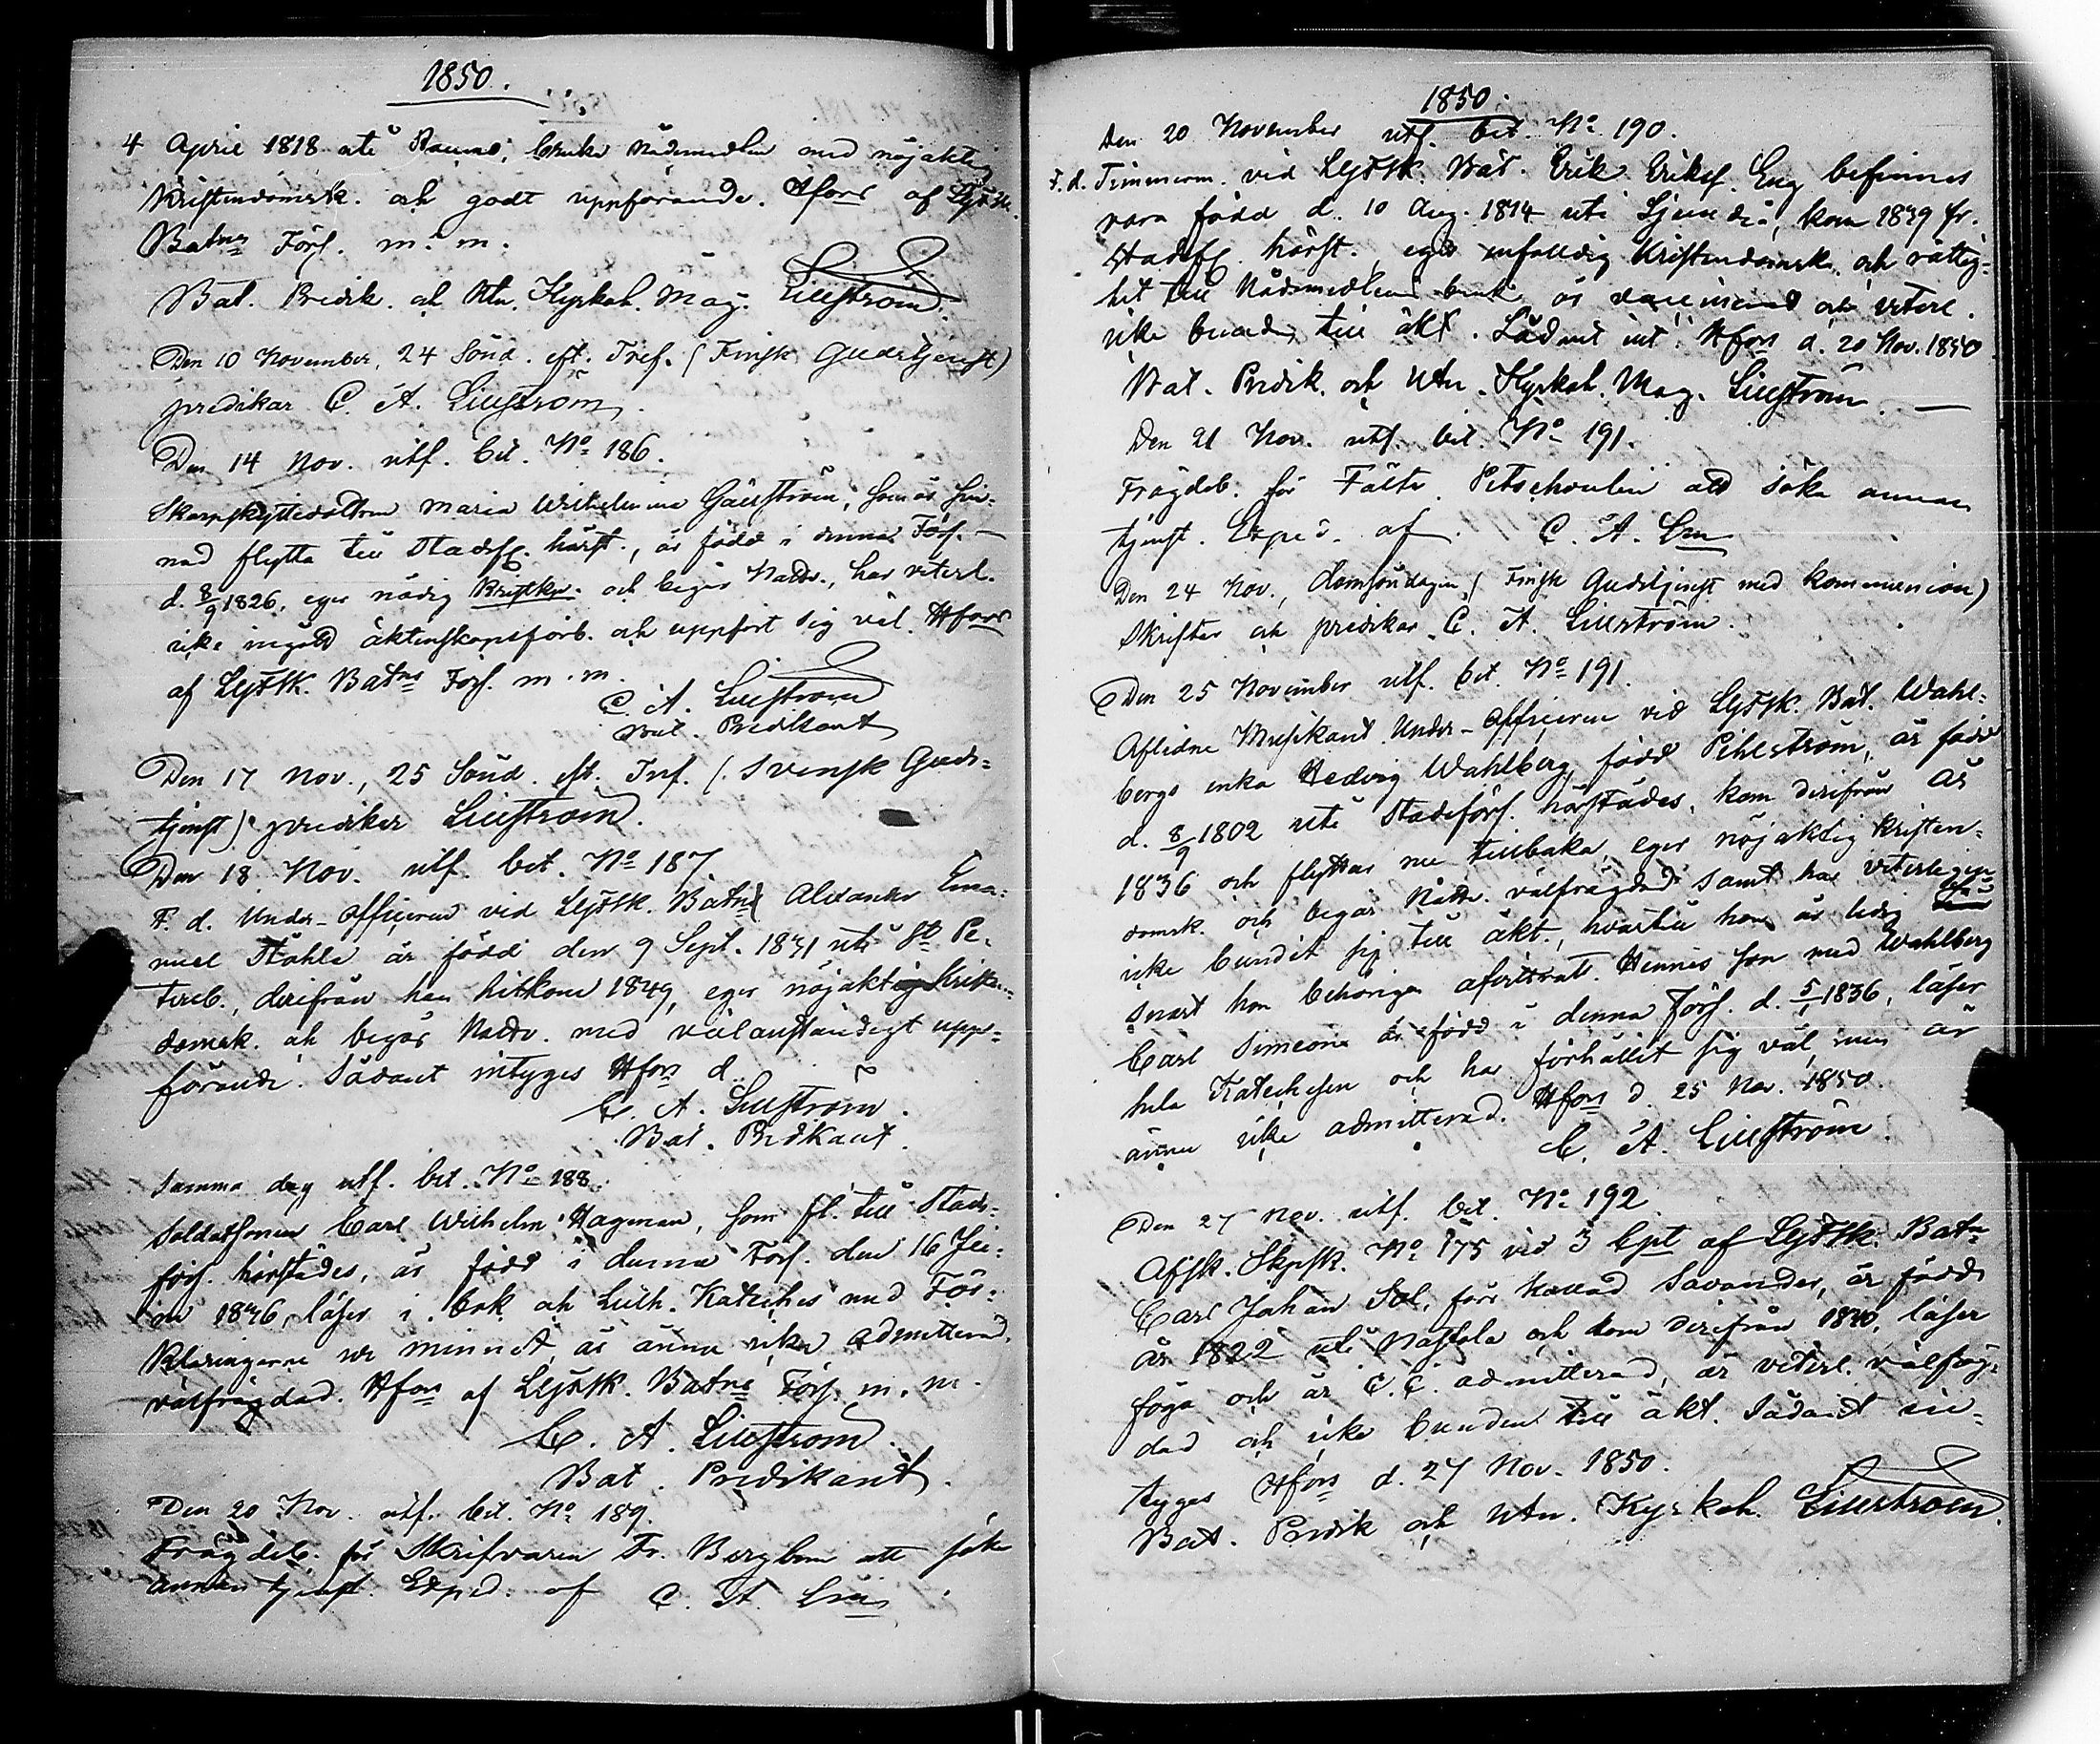 1850.
4 April 1818 uti Raumo, bruka nådemedlen med nöjaktig
Kristendomsk. och godt uppförande. Hfors af LgFSk.
Batns Förs. m. m.
Bat. Predik. och Utn. Kyrkoh. Mag. Lillström.
Den 10 November, 24 Sönd. eft. Tref. (Finsk Gudstjenst)
predikar C. A. Lillström.
Den 14 Nov. utf. bet. No 186.
Skarpskyttedottren Maria Wilhelmina Gällström, som är sin-
nad flytta till Stadsf. härst., är född i denna Förs.
d. 8/9 1826, eger nödig Kristkp. och begår Nattv., har veterl.
icke ingått äktenskapsförb. och uppfört sig väl. Hfors
af LgFSk. Batns Förs. m. m.
C. A. Lillström
Bat. Predikant
Den 17 Nov., 25 Sönd. eft. Tref. (Svensk Guds-
tjenst) predikar Lillström.
Den 18 Nov. utf. bet. No 187
F. d. Under-officeren vid LgFSk. Batn Alexander Ema-
nuel Ståhle är född den 9 Sept. 1831 uti St Pe-
tersb., derifrån han hitkom 1849, eger nöjaktig Kristen-
domsk. och begår Nattv. med välanständigt upp-
förande. Sådant intyges Hfors d.
C. A. Lillström.
Bat. Predikant.
Samma dag utf. bet. No 188.
Soldatsonen Carl Wilhelm Hagman, som fl. till Stads-
förs. härstädes, är född i denna Förs. den 16 Ju-
ni 1836, läser i bok och Luth. Katechés med För-
klaringarne ur minnet, är ännu icke admitterad,
välfrägdad. Hfors af LgFSk. Batns Förs. m. m.
C. A. Lillström.
Bat. Predikant.
Den 20 Nov. utf. bet. No 189.
Frägdeb. för Skrifvaren Fr. Bergbom att söka
annan tjenst. Exped. af C. A. Lm
1850.
Den 20 November utf. bet. No 190.
F. d. Timmerm. vid LgFSk. Bat. Erik Eriksf. Eng befinnes
vara född d. 10 Aug. 1814 uti Sjundeå, kom 1839 fr.
Stadsf. härst., eger enfaldig Kristendomsk. och rättig-
het till Nådemedlens bruk, är och veterl.
icke bunden till äkt. Sådant int. Hfors d. 20 Nov. 1850
Bat. Predik. och Utn. Kyrkoh. Mag. Lillström.
Den 21 Nov. utf. bet. No 191.
Frägdeb. för Fältv. Petschoulin att söka annan
tjenst. Exped. af C. A. Lm
Den 24 Nov., Domsöndagen, (Finsk Gudstjenst med kommunion)
Skriftar och predikar C. A. Lillström.
Den 25 November utf. bet. No 191.
Aflidne Musikant Under-Officeren vid LgFSk. Bat. Wahl-
bergs enka Hedvig Wahlberg, född Pihlström, är född
d. 8/9 1802 uti Stadsförs. härstädes, kom derifrån år
1836 och flyttar nu tillbaka, eger nöjaktig Kristen-
domsk. och begår Nattv. välfrägdad samt har veterligen
icke bundit sig till äkt., hvartill hon är ledig så
snart hon behörigen afvittrat. Hennes son med Wahlberg
Carl Simeon är född i denna Förs. d. 5/1 1836, läser
hela Katechesen och har förhållit sig väl, men är
ännu icke admitterad. Hfors d. 25 Nov. 1850.
C. A. Lillström.
Den 27 Nov. utf. bet. No 192
Afsk. Skpsk. No 175 vid 3 Cpt af LgFSk. Batn
Carl Johan Sol, förr kallad Savander, är född
år 1822 uti Nastola och kom derifrån 1840, läser
föga och är admitterad, är veterl. välfräg-
dad och icke bunden till äkt. Sådant in-
tyges Hfors d. 27 Nov. 1850.
Bat. Predik och Utn. Kyrkoh. Lillström.